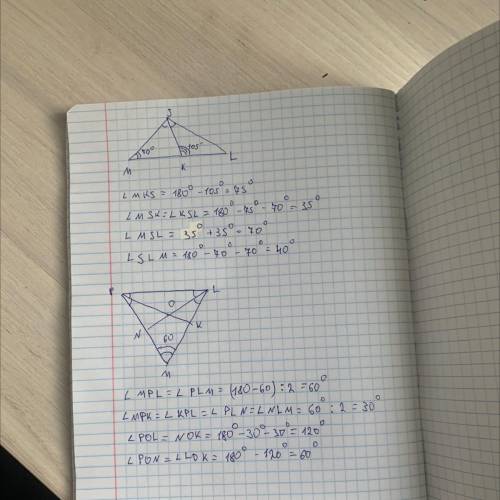 S
70° 105°
M K L
∠MKS = 180° - 105° = 75°
∠MSK = ∠KSL = 180° - 75° - 70° = 35°
∠MSL = 35° + 35° = 70°
∠SLM = 180° - 70° - 70° = 40°
P L
O
N K
60
M
∠MPL = ∠PLM = (180 - 60) : 2 = 60°
∠MPK = ∠KPL = ∠PLN = ∠NLM = 60° : 2 = 30°
∠POL = NOK = 180° - 30° - 30° = 120°
∠PON = ∠LOK = 180° - 120° = 60°